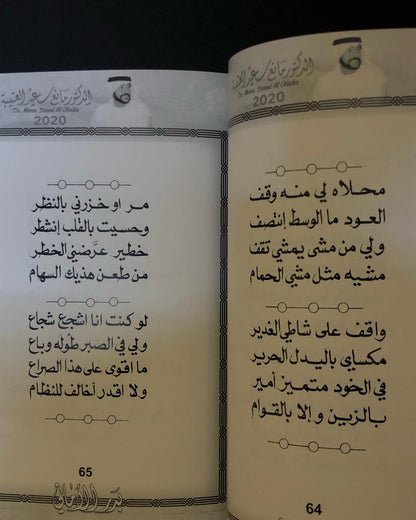 الدكتور مانع سعيد العتيبة
Dr. Mana Saeed Al Otaiba
2020
محلاه لي منه وقف
العود ما الوسط إنتصف
ولي من مشى يمشي تقف
مشيه مثل مشي الحمام
واقف على شاطي الغدير
مكساي باليدل الحرير
في الخود متميز أمير
بالزين و إلا بالقوام
64
الدكتور مانع سعيد العتيبة
Dr. Mana Saeed Al Otaiba
2020
مر او خزرني بالنظر
وحسيت بالقلب إنشطر
خطير عرَّضني الخطر
من طعن هذيك السهام
لو كنت انا اشجع شجاع
ولي في الصبر طوله وباع
ما اقوى على هذا الصراع
ولا اقدر أخالف للنظام
65